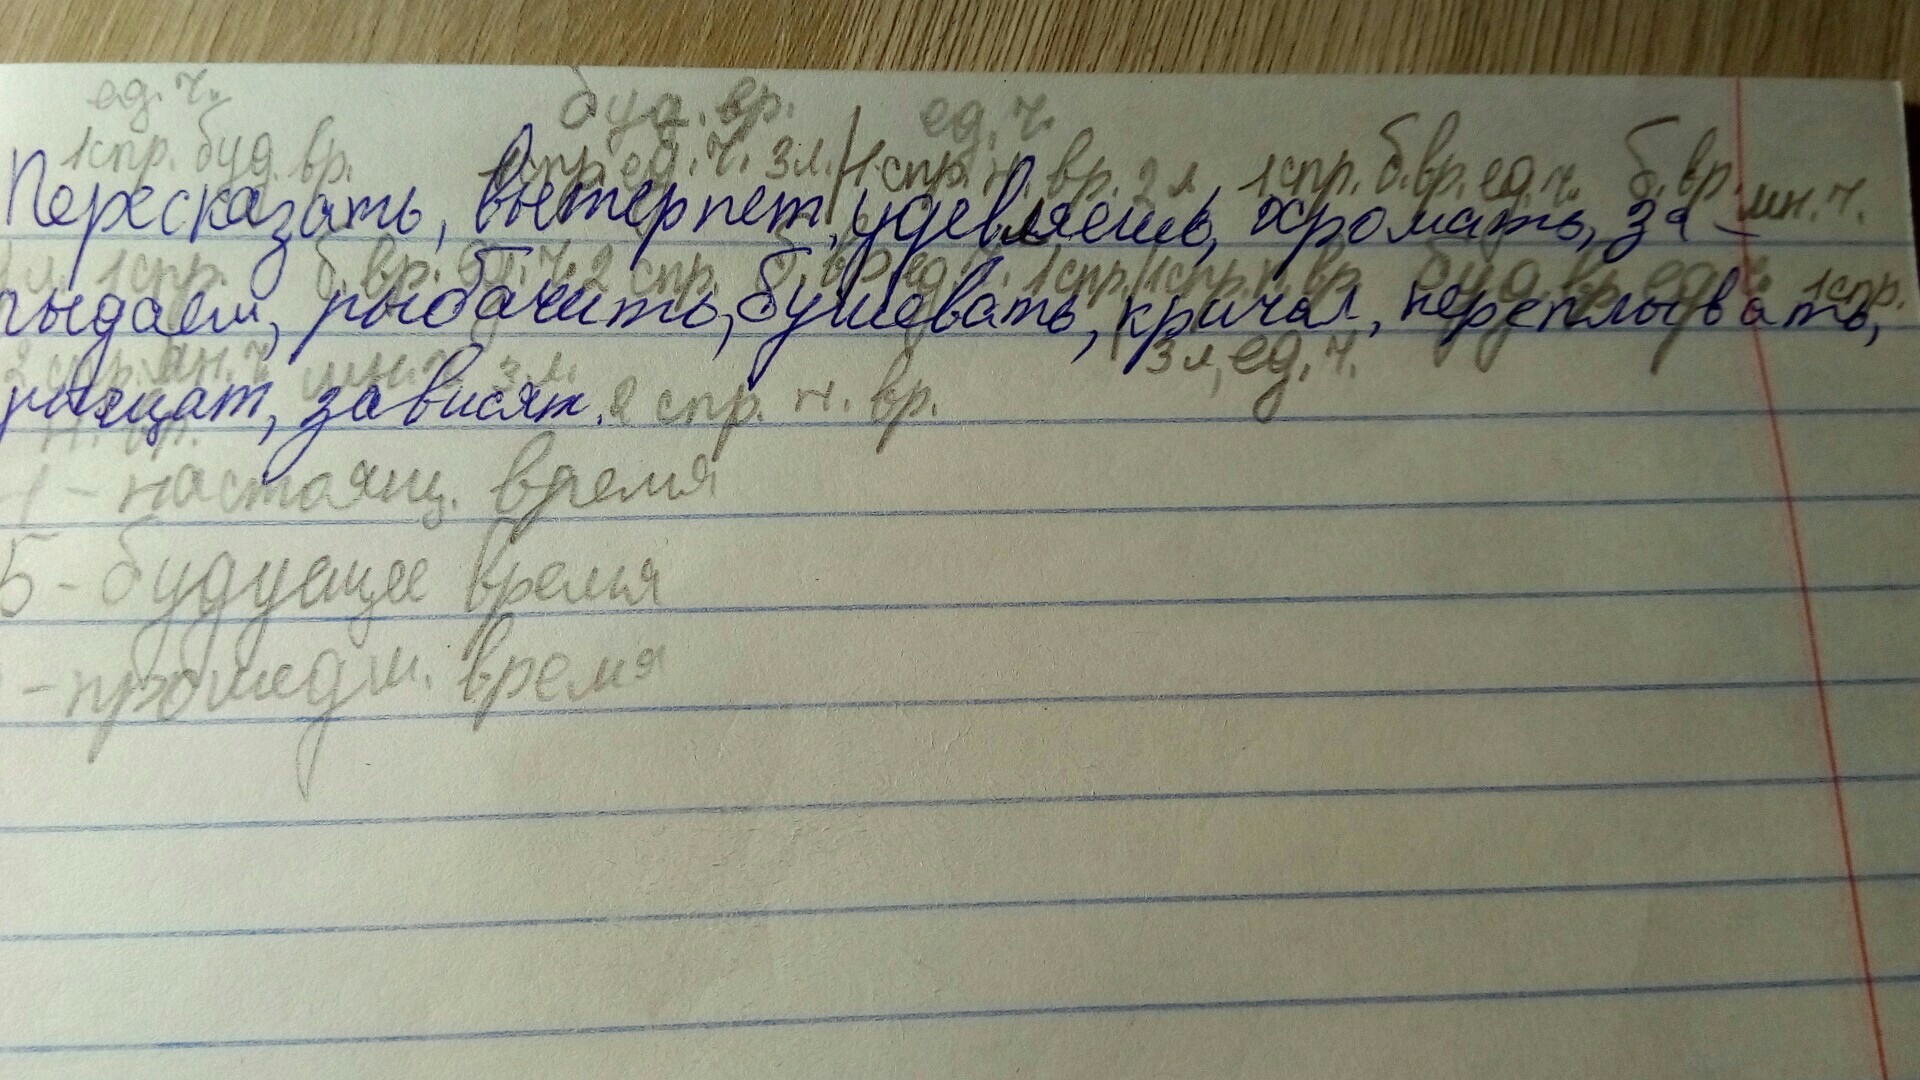 ед. ч.
буд. вр.
ед. ч.
1 спр. буд. вр.
спр. ед. ч. 3 л. 1 спр. н. вр. 2 л. 1 спр. б. вр. ед. ч. б. вр. мн. ч.
Пересказать, вытерпет, удевляешь, хромать, за-
л. 1 спр. б. вр. ед. ч. 2 спр. б. вр. ед. ч. 1 спр. 1 спр. п. вр. буд. вр. ед. ч. 1 спр.
рыдаем, рыбачить, бушевать, кричал, переплывать,
3 л, ед. ч.
2 спр. мн. ч. мн. ч. 3 л.
рыщат, зависят. 2 спр. н. вр.
н. вр.
- настоящ. время
Б - будущее время
- прошедш. время